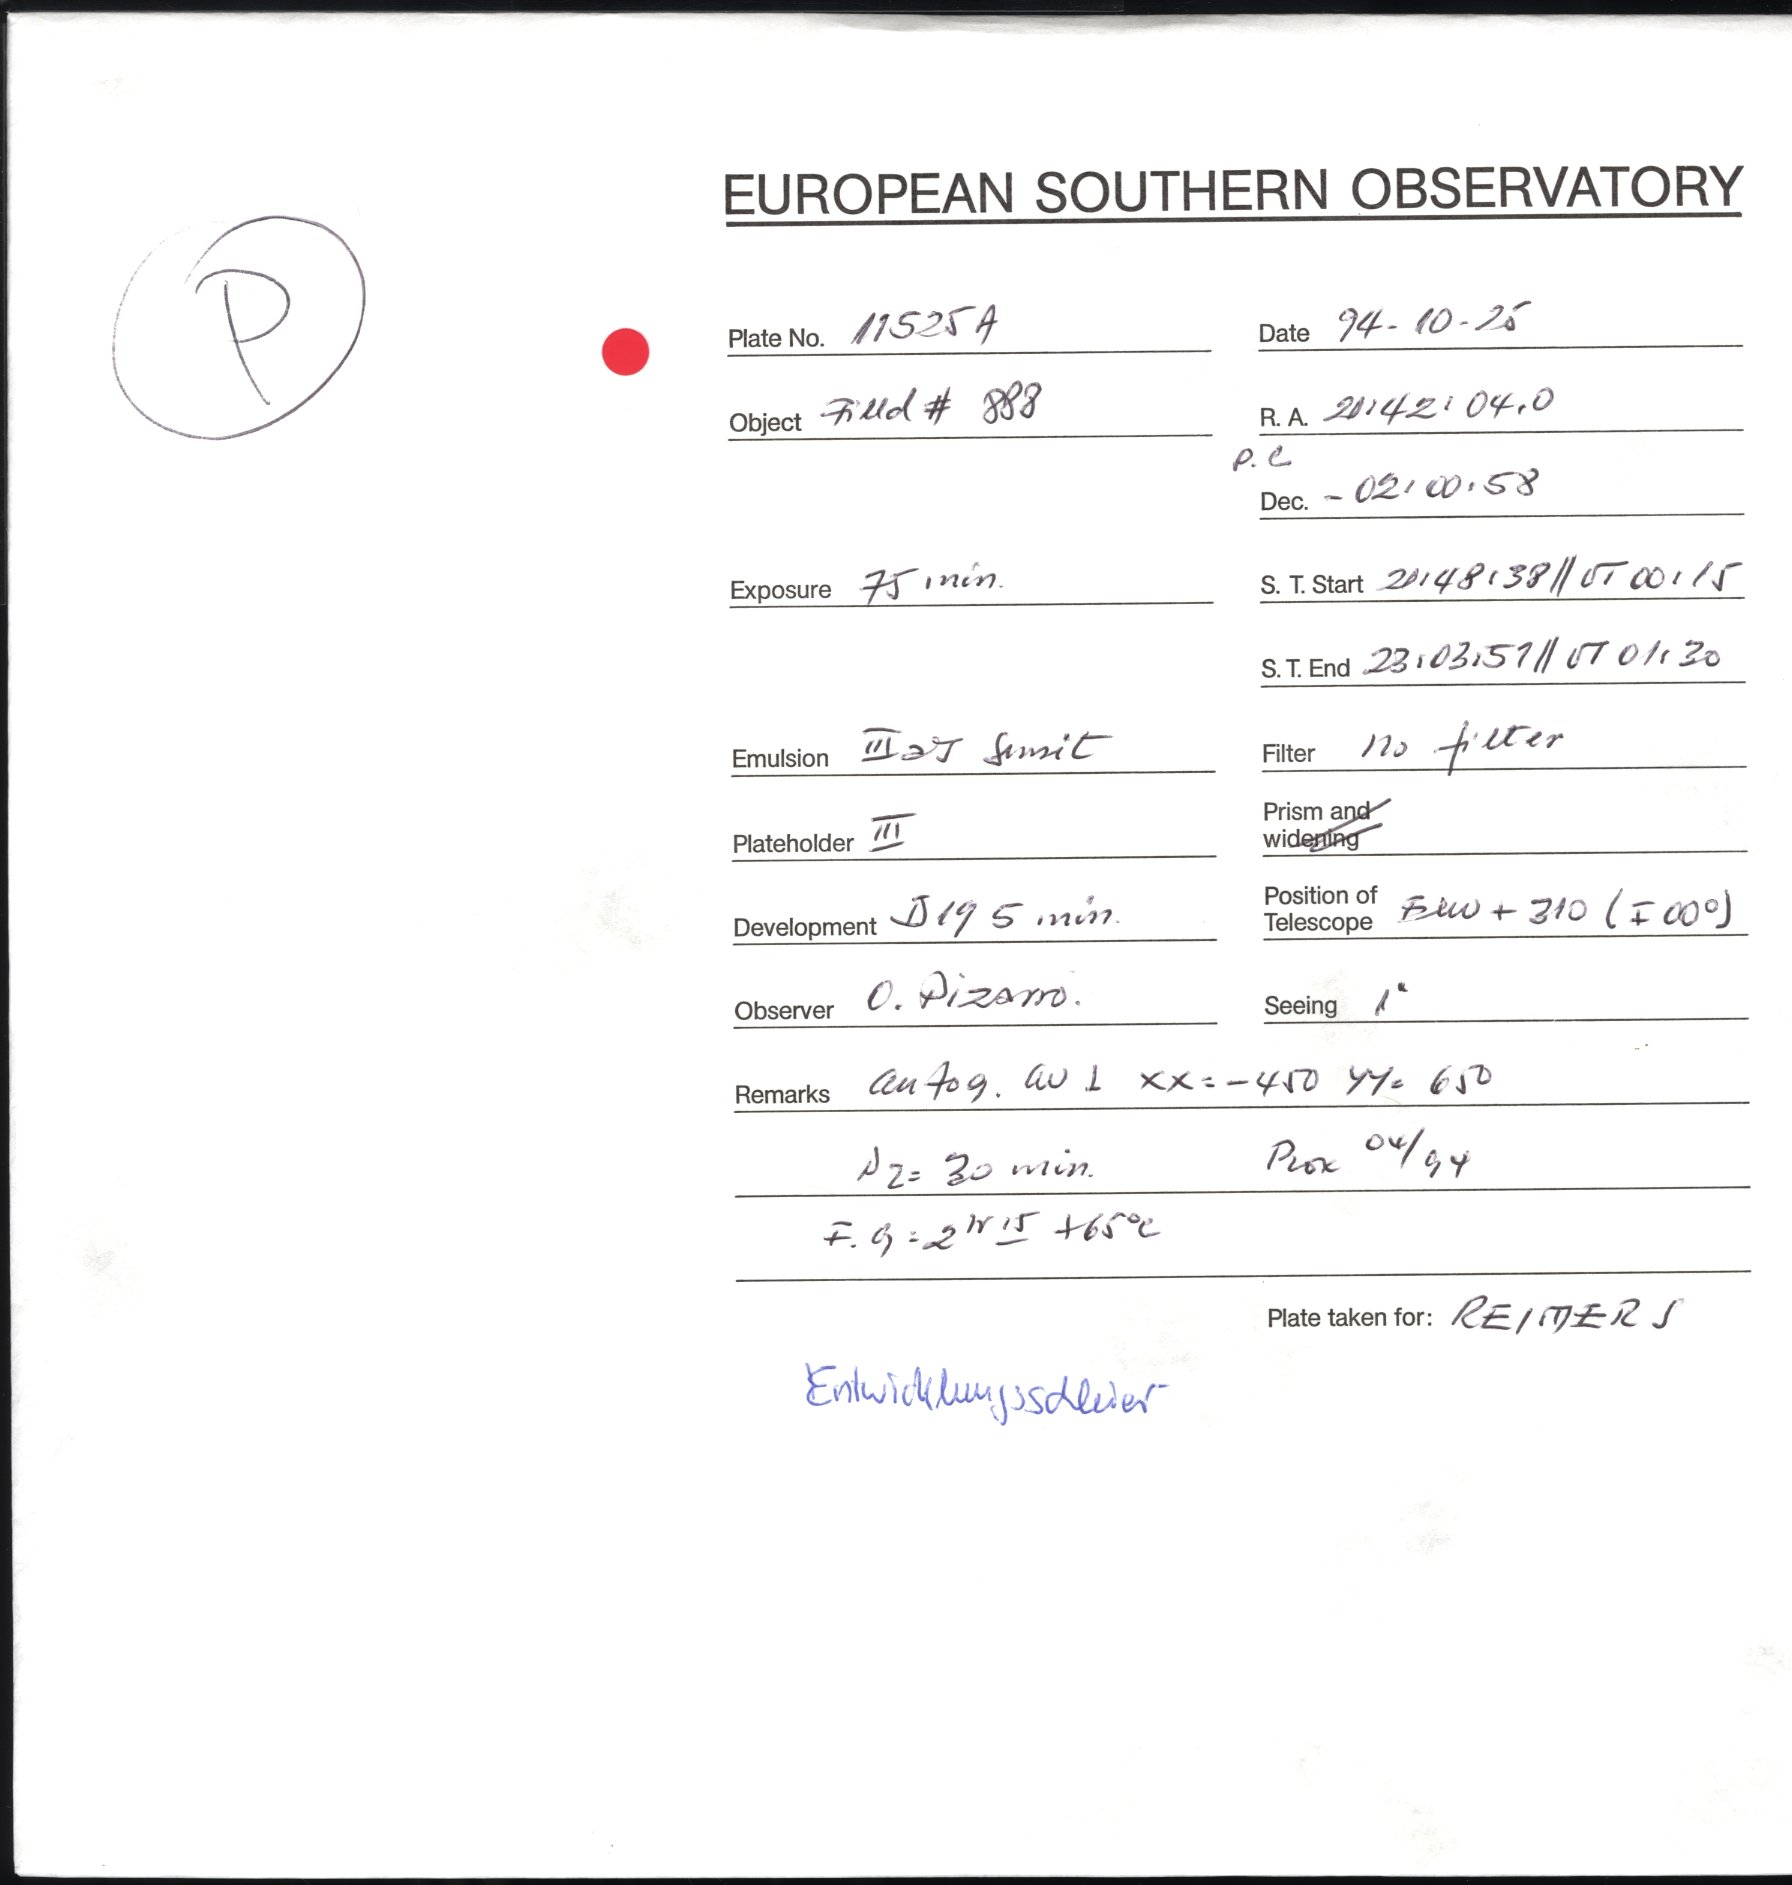 EUROPEAN SOUTHERN OBSERVATORY
P
Plate No. 11525A
Date 94-10-25
Object Field # 888
R. A. 20:42:04.0
P. C
Dec. - 02:00:58
Exposure 75 min.
S. T. Start 20:48:38// UT 00:15
S. T. End 23:03:51// UT 01:30
Emulsion III aJ
Filter no filter
Plateholder III
Prism and widening
Development D19 5 min.
Position of Telescope + 310 (I 00°)
Observer O. Pizarro.
Seeing 1"
Remarks autog. XX=-450 YY= 650
N2= 30 min. 04/94
F. G = 2hr 15 +65°C
Plate taken for: REIMERS
Entwicklungsschleier